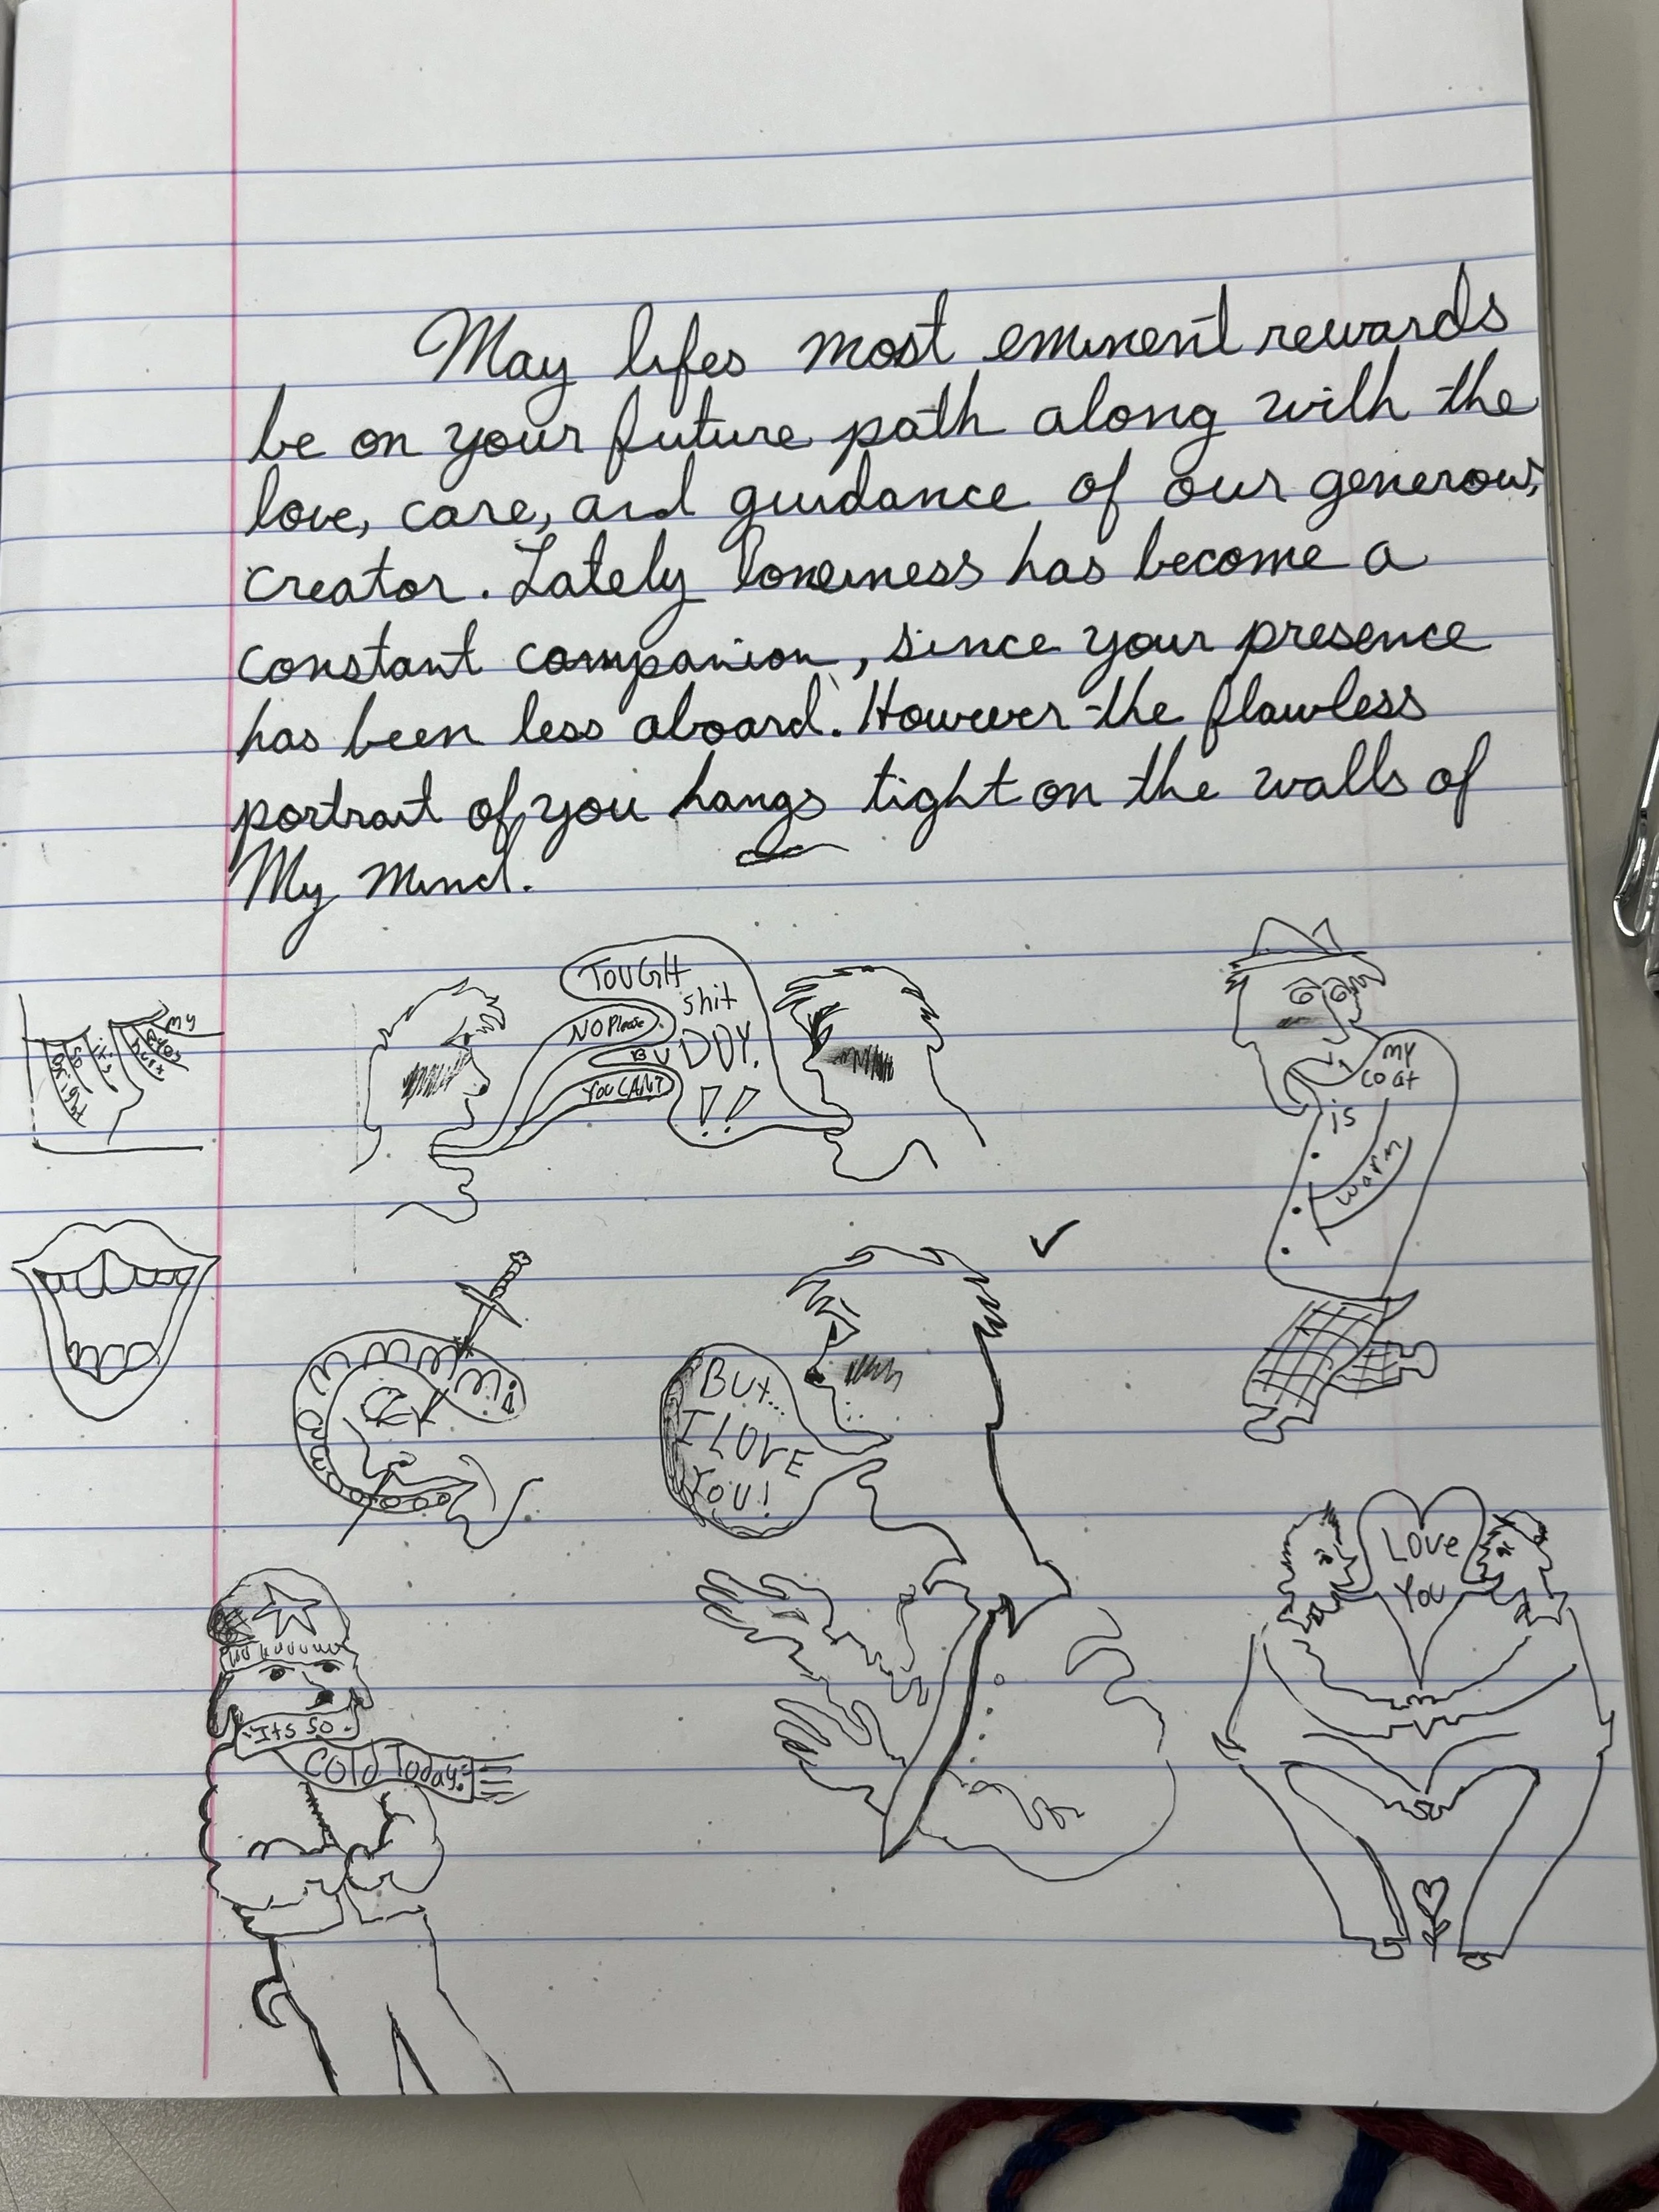 May lifes most eminent rewards
be on your future path along with the
love, care, and guidance of our generous
creator. Lately loneiness has become a
constant companion, since your presence
has been less aboard. However the flawless
portrait of you hangs tight on the walls of
My mind.
TOUGH
shit
BUDDY.
!!
NO Please
YOU CANT
my
coat
is
warm
my
eyes
hurt
it's
so
bright
But...
I LOVE
YOU!
Love
You
"Its so
Cold Today."